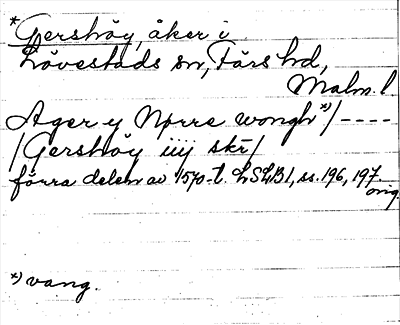 *Gershöy, åker i
Lövestads sn, Färs hd,
Malm. l.
Ager y Nørre wongh *)/----
/Gershöy iiij skr/
förra delen av 1570-t. LSLB1, ss. 196, 197
orig.
*) vang.